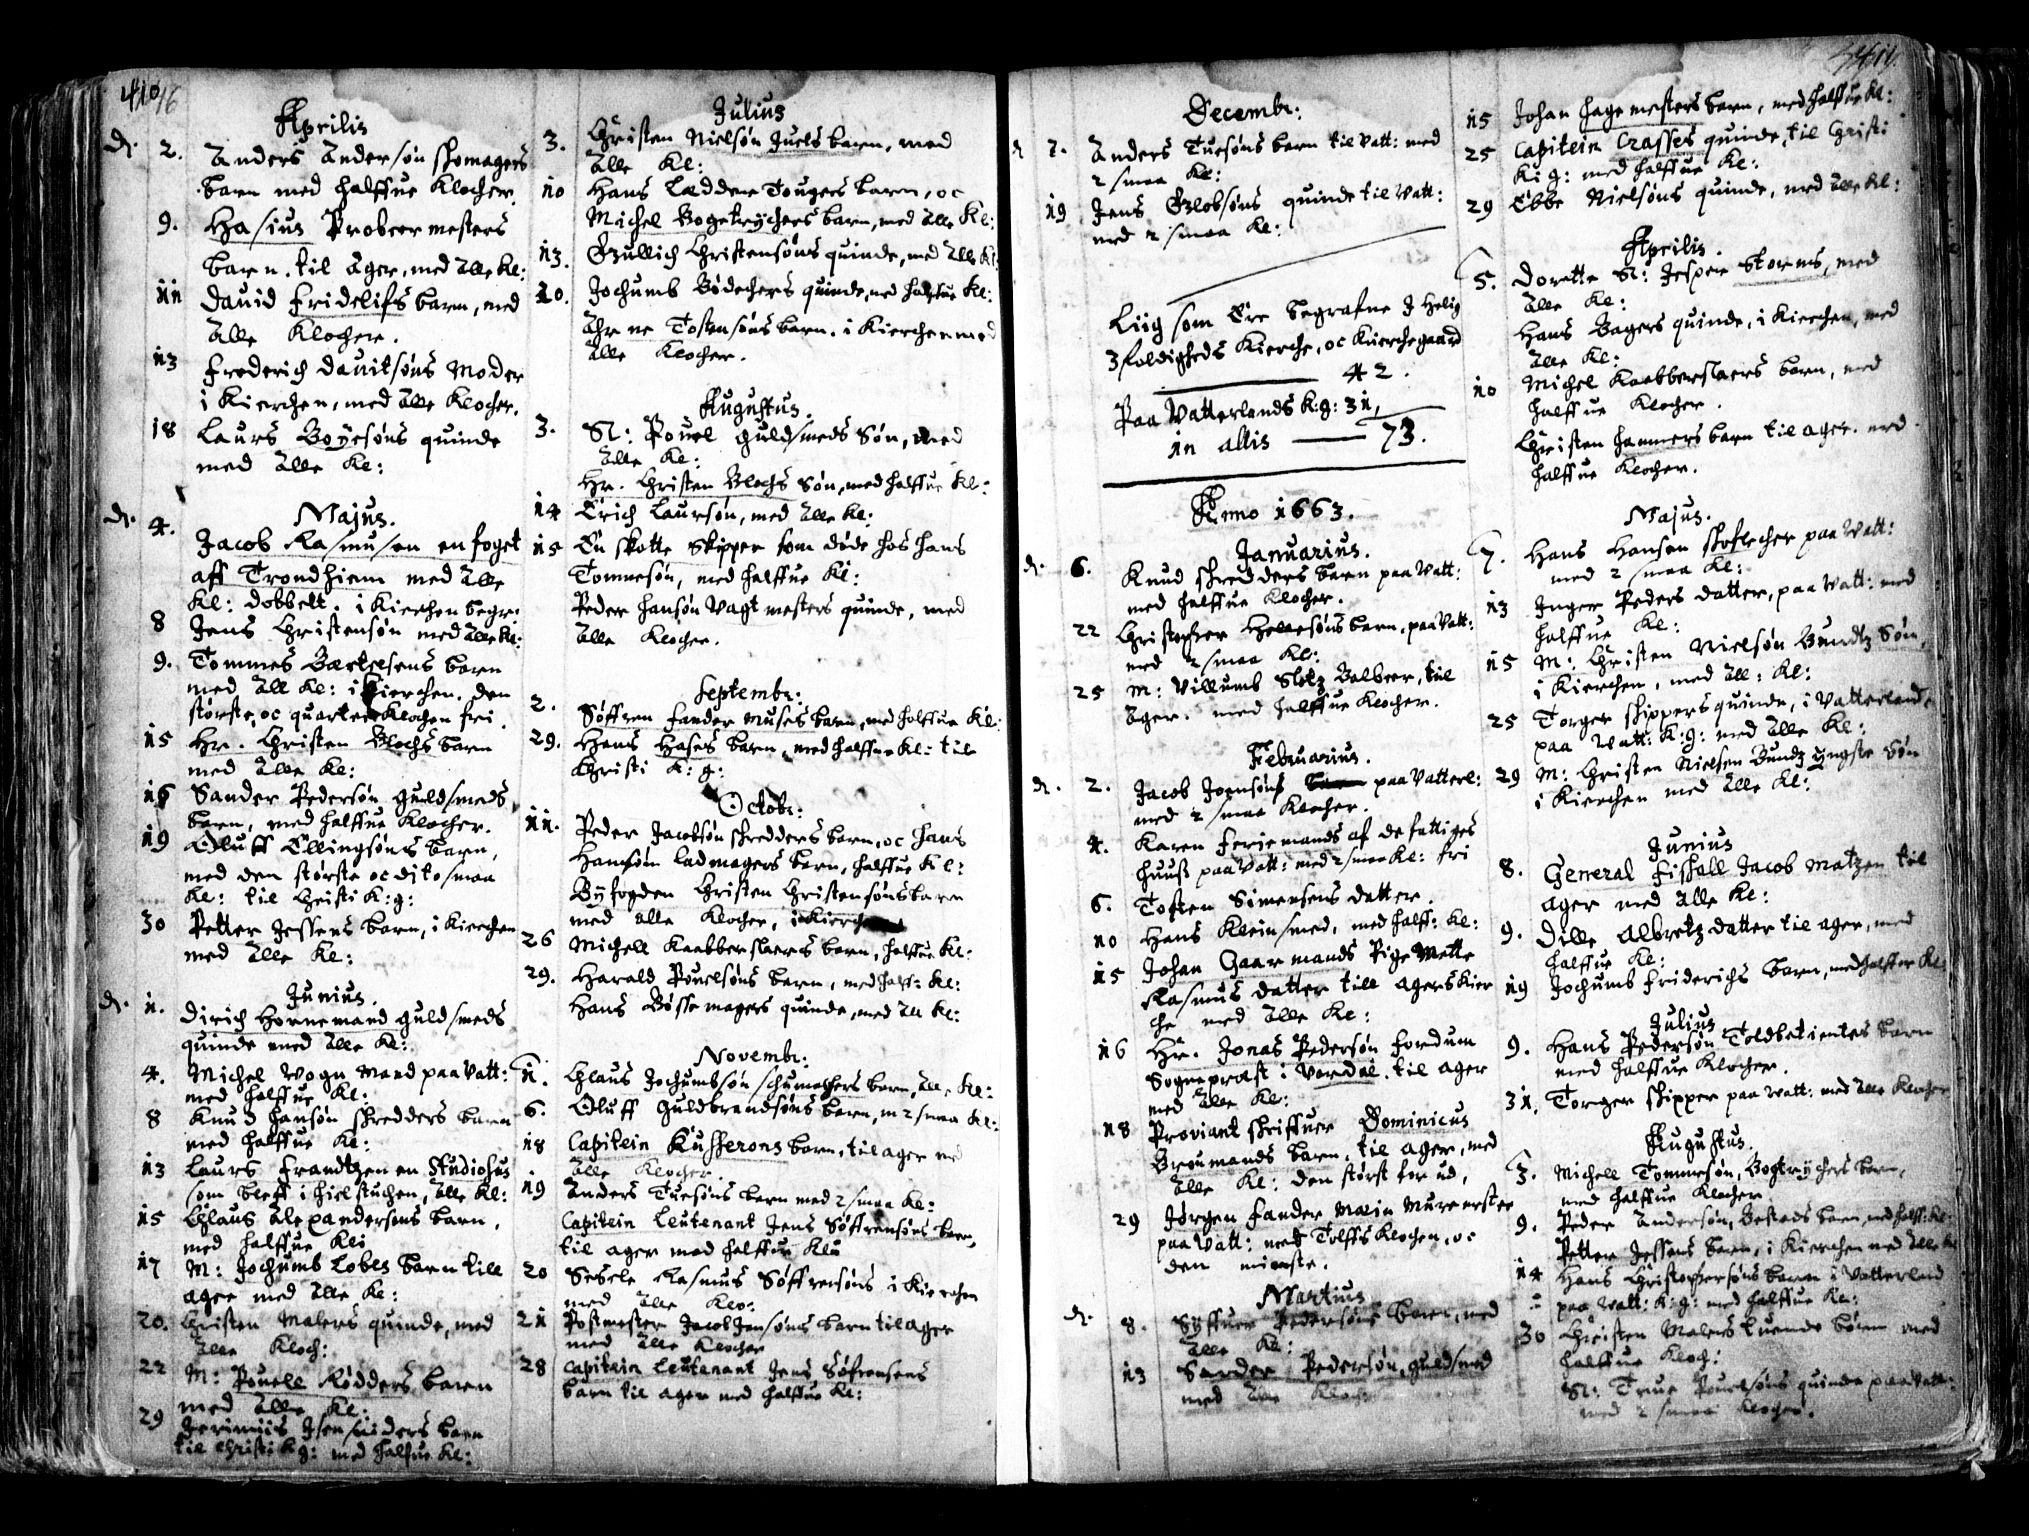 410 16
Aprilis
d. 2. Anders Andersøn skomagers
barn med halffue Klocher.
9. Hasius Probeermesters
barn. til ager, med alle Kl:
11 David Fridelifs barn, med
alle Klocher.
13 Frederich Davitsøns Moder
i Kierchen, med alle Klocher.
18 Laurs Boyesøns quinde
med alle Kl:
Majus.
d. 4. Jacob Rasmusen en foget
aff Trondhiem med alle
Kl: dobbelt. i Kierchen begr:
8 Jens Christensøn med alle Kl:
9. Tommes Bertelsens barn
med all Kl: i Kierchen. den
største, oc quarteer Klochen fri.
15 Hr. Christen Blochs barn
med alle Kl:
16 Sander Pedersøn guldsmeds
barn, med halffue Klocher.
19 Oluff Ellingsøns barn,
med den største oc dito smaa
Kl: til Christi K: g:
30 Petter Jessens barn, i Kierchen
med alle Kl:
Junius.
d. 1. Dirich Hornemand guldsmeds
quinde med alle Kl:
4. Michel Vogn mand paa Vatt:
med halffue Kl:
8 Knud Hansøn skredders barn
med halffue Kl:
13 Laurs Frandtzen en Studiosus
som bleff i hielstuchen, alle Kl:
15 Claus Alexandersens barn,
med halffue Kl:
17 M: Jochumb Lobes barn till
ager med alle Kl:
20. Christen Malers quinde, med
alle Kloch:
22 M: Pouell Rødders barn
med alle Kl:
29 Jerimiis Isensniders barn
til Christi K g: med halfue Kl:
Julius
3. Christen Nielsøn Juels barn, med
alle Kl:
10 Hans Ladder Tougers barn, oc
Michel Bogetrychers barn, med alle Kl:
13. Gullich Christensøns quinde, med alle Kl:
20. Jochumb Bødechers quinde, med halffue Kl:
Tostensøns barn. i Kierchen med
alle Klocher.
Augustus.
3. Sl: Pouel guldsmeds Søn, med
alle Kl:
Hr. Christen Blochs Søn, med halffue Kl:
14 Erich Laursøn, med alle Kl:
15 En skotte Skipper som døde hos Hans
Tommesøn, med halffue Kl:
Peder Hansøn Vagtmesters quinde, med
alle Klocher.
Septembr:
2. Søffren Fander Muses barn, med halffue Kl:
29. Hans Hases barn, med halffue Kl: til
Christi K: g:
Octobr:
11. Peder Jacobsøn skredders barn, oc Hans
Hansøn Ladmagers barn, halffue Kl:
Byfogden Christen Christensøns barn
med alle Klocher, i Kierchen
26 Michell Kaabberslaers barn, halffue Kl:
29. Harald Pouelsøns barn, med halff: Kl:
Hans Bøssemagers quinde, med all Kl:
Novembr:
1. Claus Jochumbsøn schumachers barn, alle Kl:
6. Oluff Guldbrandsøns barn, m 2 smaa Kl:
18 Capitein Kusserons barn, til ager med
alle Klocher
19 Anders Tuesøns barn med 2 smaa Kl:
Capitein Leutenant Jens Søffrensøns barn,
til ager med halffue Kl:
20 Sesele Rasmus Søffrensøns i Kierchen
med alle Klo:
21 Postmester Jacob Jensøns barn til ager
med alle Klocher
28 Capitein Leutenant Jens Søfrensens
barn til ager med halffue Kl:
Decembr:
7. Anders Tuesøns barn til Vatt: med
2 smaa Kl:
19 Jens quinde til Vatt:
med 2 smaa Kl:
Liig som Ere begrafne I Helig
3foldigheds Kierche, oc Kierchegaard
42.
Paa Vatterlands K: g: 31,
in allis — 73.
Anno 1663.
Januarius.
d. 6. Knud skredders barn paa Vatt:
med halffue Klocher.
22 Christopher Hellesøns barn, paa Vatt:
med 2 smaa Kl:
25 M: Villumb Slotz Balbeer, til
ager. med halffue Klocher.
Februarius.
d. 2. Jacob Joensøns barn paa Vatterl:
med 2 smaa Klocher.
4. Karen Feriemands af de fattiges
huus paa Vatt: med 2 smaa Kl: fri
6. Tosten Simensens datter.
10 Hans Kleinsmed, med halff: Kl:
15 Johan Gaarmands Pige Mette
Rasmus datter till Agers Kier
che med alle Kl:
16 Hr. Jonas Pedersøn fordum
Sogneprest i Verdal. til ager
med alle Kl:
18 Proviant skriffuer Dominicus
Broumands barn, til ager, med
alle Kl: den størst for ud,
29 Jørgen Fander Mein Murmester
paa Vatt: med Tolffs klochen, oc
den minste.
Martius
d. 8. Pedersøns barn, med
alle Kl:
13 Sander Pedersøn, guldsmed
med alle Kloch:
411.
15 Johan Hagemesters barn, med halffue Kl:
25 Capitein Crasses quinde, til Cristi
K: g: med halffue Kl:
29 Ebbe Nielsøns quinde, med alle Kl:
Aprilis.
5. Dorette Sl: Jesper Storms, med
alle Kl:
Hans Bagers quinde, i Kierchen, med
alle Kl:
10 Michel Kaabberslaers barn, med
halffue Klocher.
Christen Hammers barn til ager. med
halffue Klocher.
Majus.
7. Hans Hansen skoflecher paa Vatt:
med 2 smaa Kl:
13 Inger Peders datter, paa Vatt: med
halffue Kl:
15 M: Christen Nielsøn Bundtz Søn,
i Kierchen, med all: Kl:
25 Torger skippers quinde, i Vatterland,
paa Vatt: K: g: med alle Kl:
29 M: Christen Nielsen Bundtz yngste Søn
i Kierchen med alle Kl:
Junius
8. General Fiskall Jacob Matzen til
ager med alle Kl:
9. Dille Albretz datter til ager, med
halffue Kl:
19 Jochumb Friderichs barn, med halffue Kl:
Julius
9. Hans Pedersøn Toldbetientes barn
med halffue Klocher.
31. Torger skipper paa Vatt: med alle Klocher
Augustus.
3. Michell Tommesøn, Bogtrychers barn,
med halffue Klocher
9. Peder Andersøn, barn, med halff: Kl:
Petter Jessens barn, i Kierchen med alle Kl
14 Hans Christophersøns barn i Vatterland
paa Vatt: K: g: med halffue Kl:
30 Christen Malers tuende børn med
halffue Kloch:
Sl: True Pouelsøns quinde paa Vatt:
med 2 smaa Klocher.